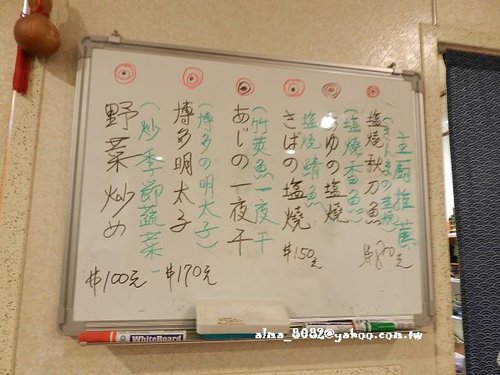 主廚推薦
(さんまの塩燒)
塩燒秋刀魚
(塩燒香魚)
あゆの塩燒
(塩燒鯖魚)
さばの塩燒
$150元
(竹莢魚一夜干)
あじの一夜干
(博多の明太子)
博多明太子
$170元
(炒季節蔬菜)
野菜炒め
$100元
WHITEBOARD
alma_8082@yahoo.com.tw